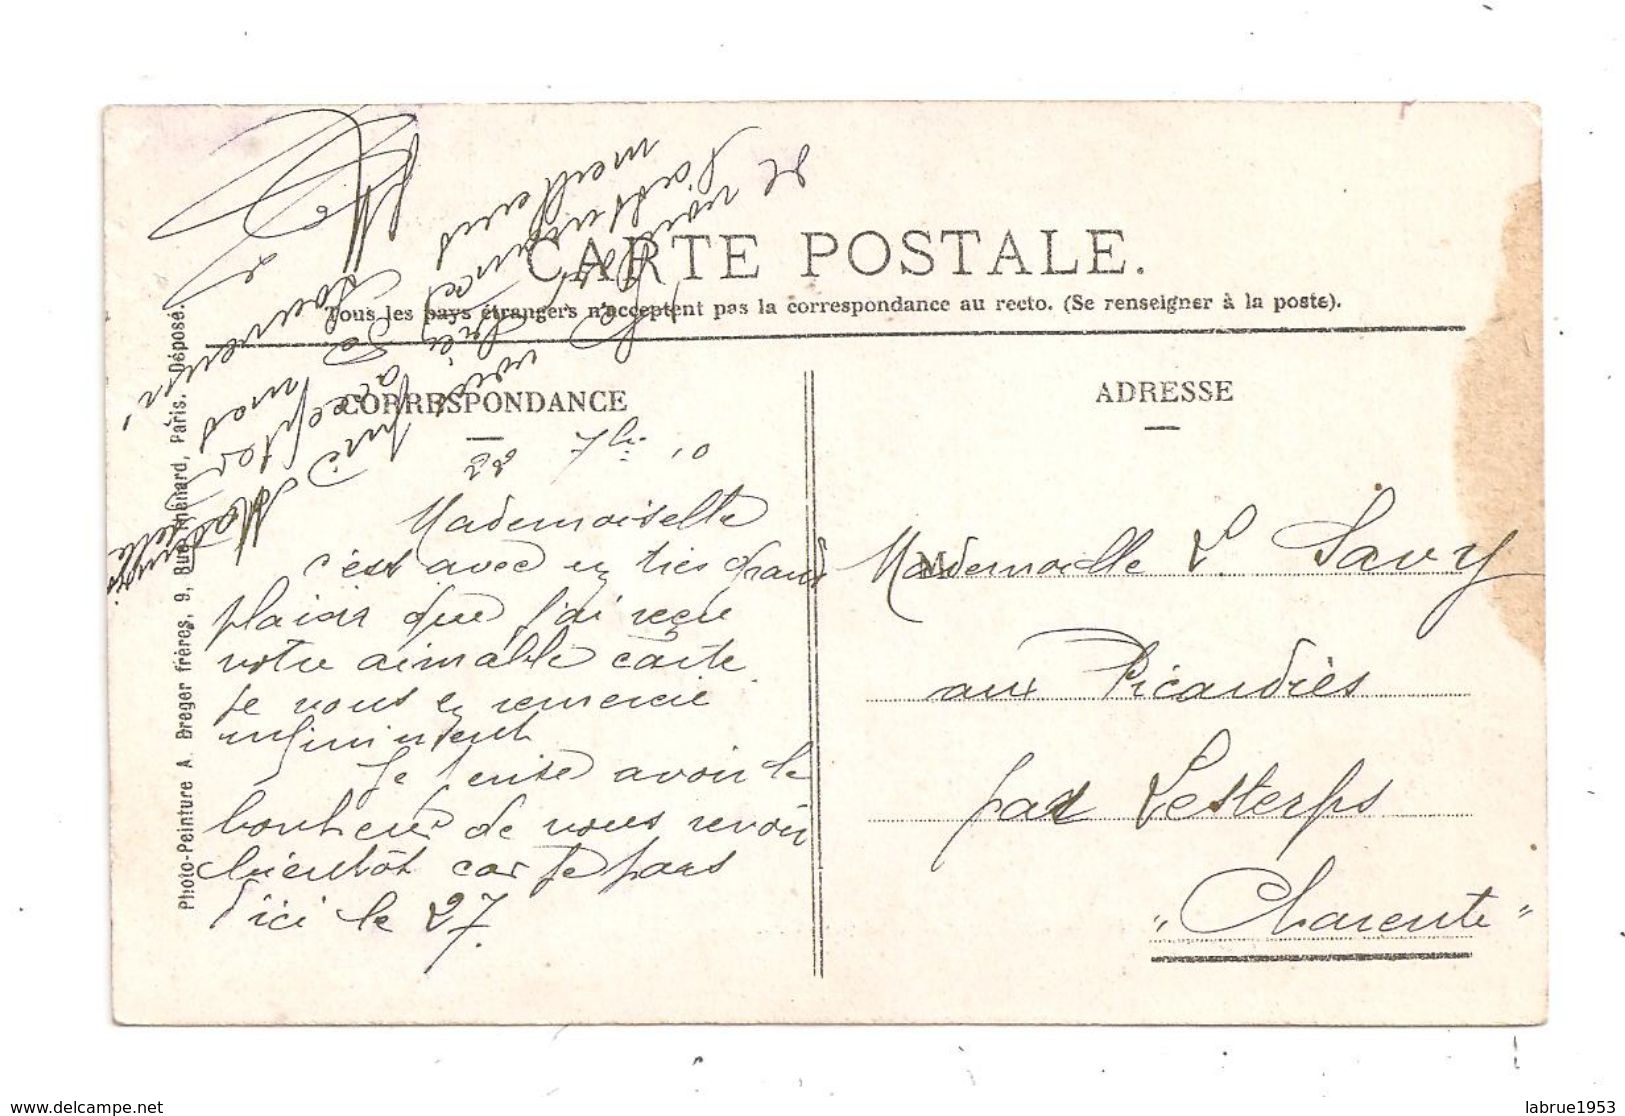 CARTE POSTALE.
Tous les pays étrangers n'acceptent pas la correspondance au recto. (Se renseigner à la poste).
CORRESPONDANCE
ADRESSE
22 7bre 10
Mademoiselle
c'est avec un très grand
plaisir que j'ai reçu
votre aimable carte
je vous en remercie
infiniment
Je pense avoir le
bonheur de vous revoir
bientôt car je pars
d'ici le 27.
Mademoiselle L. Savy
aux Picardies
par Lesterps
"Charente"
Photo-Peinture A. Breger frères, 9, Rue Thénard, Paris. Déposé.
prie
accepter
Mademoiselle
meilleurs
souvenirs
www.delcampe.net
labrue1953